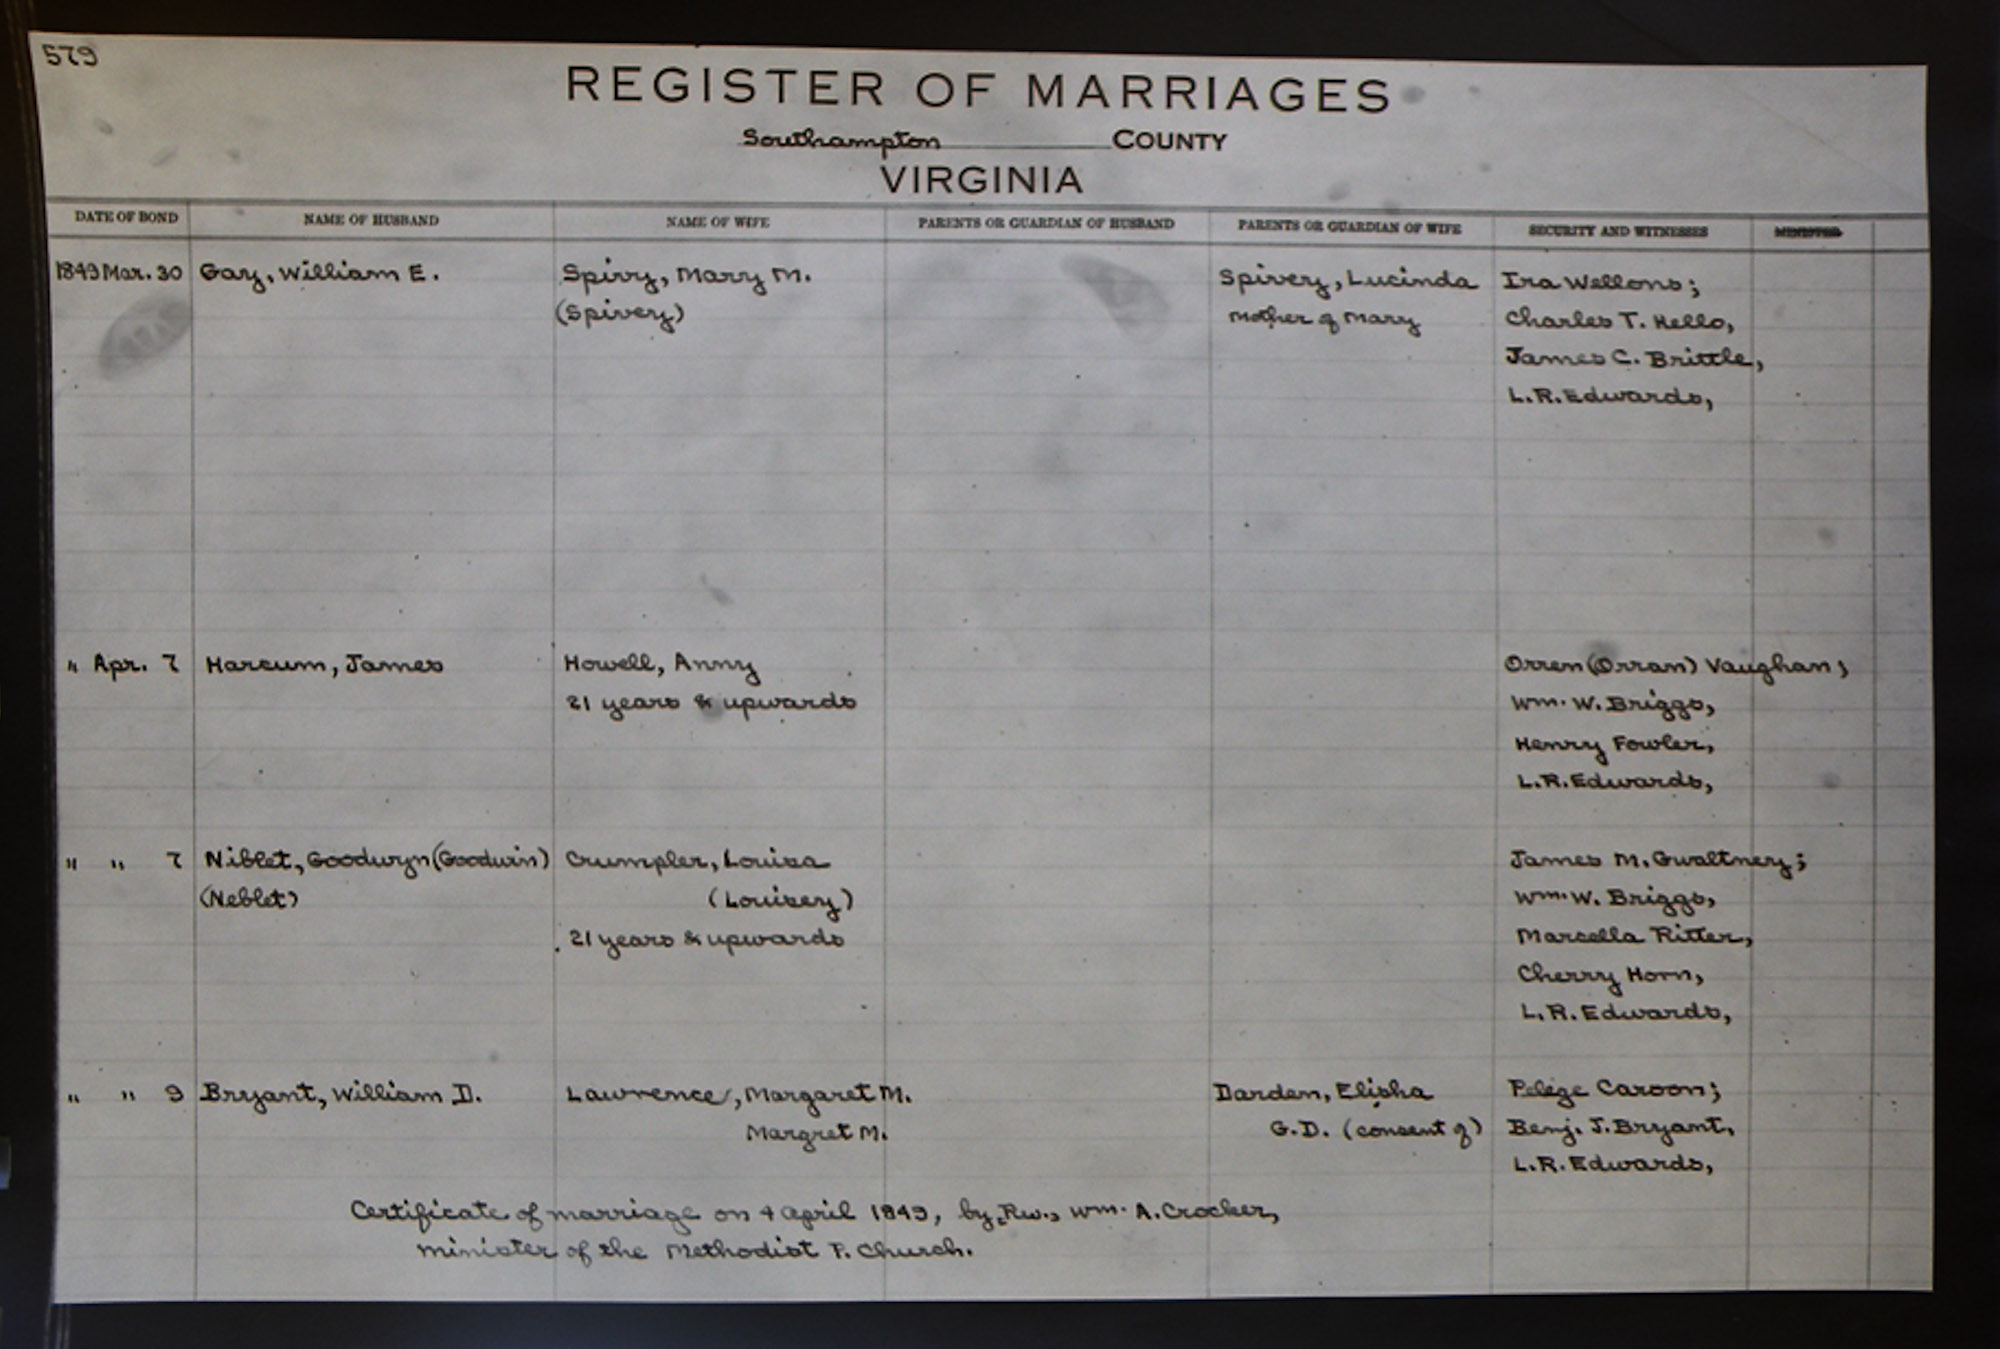 579
REGISTER OF MARRIAGES
Southampton COUNTY
VIRGINIA
DATE OF BOND NAME OF HUSBAND NAME OF WIFE PARENTS OR GUARDIAN OF HUSBAND PARENTS OR GUARDIAN OF WIFE SECURITY AND WITNESSES MINISTER
1849 Mar. 30 Gay, William E. Spivy, Mary M. Spivey, Lucinda Ira Wellons;
(Spivey) Mother of Mary Charles T. Kello,
James C. Brittle,
L.R. Edwards,
" Apr. 7 Harcum, James Howell, Anny Orren (Orran) Vaughan;
21 years & upwards Wm. W. Briggs,
Henry Fowler,
L.R. Edwards,
" " 7 Niblet, Goodwyn (Goodwin) Crumpler, Louisa James M. Gwaltney;
(Neblet) (Louisey) Wm. W. Briggs,
21 years & upwards Marcella Ritter,
Cherry Horn,
L.R. Edwards,
" " 9 Bryant, William D. Lawrence, Margaret M. Darden, Elisha Pelege Caroon;
Margret M. G.D. (consent of) Benj. J. Bryant,
L.R. Edwards,
Certificate of marriage on 4 April 1849, by, Rev., Wm. A. Crocker,
Minister of the Methodist P. Church.